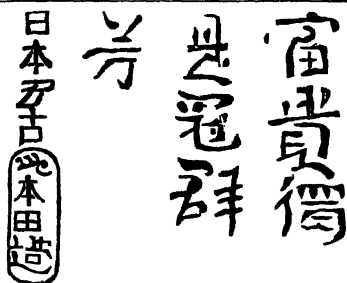 富貴獨
是冠群
芳
日本万古
本田造